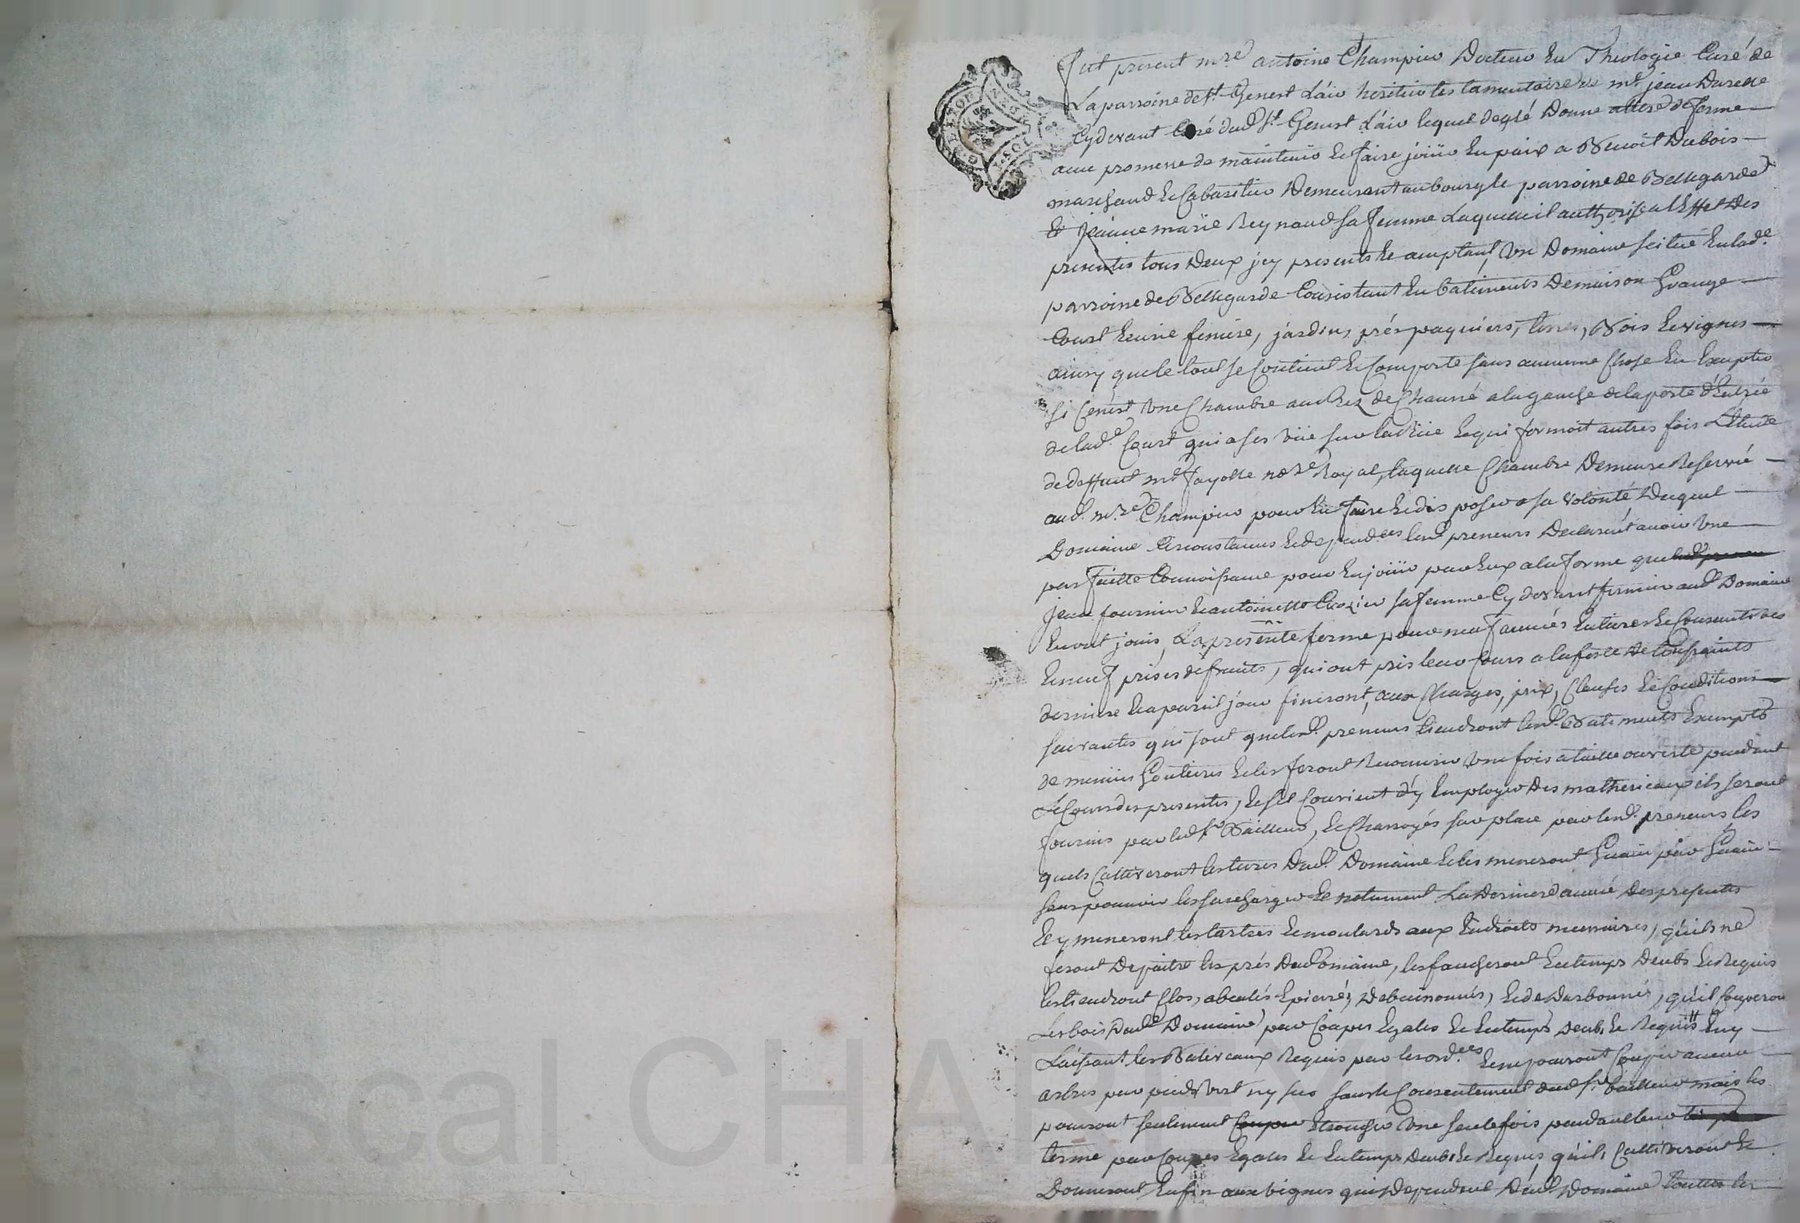 Fut present mre antoine Champier Docteur En Theologie Curé de
La parroisse de st Genest Lair heritier testamentaire de mr jean Durelle
Cydevant Curé dud st Genest Lair lequel de gré Donne a titre de ferme
avec promesse de maintenir et faire joüir En paix a Benoit Dubois
marchand Et Cabaretier Demeurant au bourg Et parroisse de Bellegarde
Et jeanne marie Reynaud sa femme Laquelle il authorise a l'Effet Des
presentes tous Deux jcy presents Et acceptant, Un Domaine scitué En lade
parroisse de Bellegarde Consistant En batiments De maison Grange
Court Ecurie feniere, jardins, prés paquiers, terres, Bois Et vignes
ainsy que le tout se Contient Et Comporte sans aucunne Chose En Excepter
si Cen'est Une Chambre au Rez de Chaussé a la gauche de la porte d'Entrée
de lade Court qui a ses vüe sur la Rüe Et qui formoit autres fois L'Etude
de deffunt me fayolle nore Royal, laquelle Chambre Demeure Reservé
aud. mre Champier pour En faire Et disposer a sa volonté Duquel
Domaine Circonstances Et dependces lesd preneurs Declarent avoir Une
parfaitte Connoissance pour En joüir par Eux a la forme que
jean fournier Et antoinette Crozier sa femme Cydevant fermier aud. Domaine
En ont jouis, La presente ferme pour neuf années Entieres Et Consecutives
Et neuf prises de fruits, qui ont pris leur Cours a la feste de toussaints
derniere Et a pareil jour finiront, aux Charges, prix, Clauses Et Conditions
suivantes qui sont que lesd. preneurs tiendront lesd. Batiments Exempts
de menües Goutieres Et les feront Recouvrir Une fois a tuille ouverte pendant
Le Cours des presentes, Et s'il Convient d'y Employer Des matheriaux ils seront
fournis par led sr Bailleur, Et Charroyés sur place par lesd. preneurs, les
quels Cultiveront les terres Dud. Domaine Et les meneront Guain par Guain
sans pouvoir les surcharger Et notament La Derniere année Des presentes
Et y meneront les tartres Et moutards aux Endroits necessaires, qu'ils ne
feront Depaitre les prés Dud Domaine, les faucheront En temps Deubs Et Requis
les tiendront Clos, abealés Epierrés, Debuissonnés, Et de Darbonnés, qu'il Couperont
Les bois Dud. Domaine par Coupes Egales Et En temps Deubs Et Requis En y
Laissant les Baliveaux Requis par les ordces Et ne pouront Couper aucun
arbres par pied Vert ny sec sans le Consentement dud sr bailleur mais les
pouront seulement Etrousser Une seule fois pendant leur
terme par Coupes Egales Et En temps Deubs Et Requis qu'ils Cultiveront Et
Donneront Enfin aux vignes qui Dependent Dud. Domaine toutes les